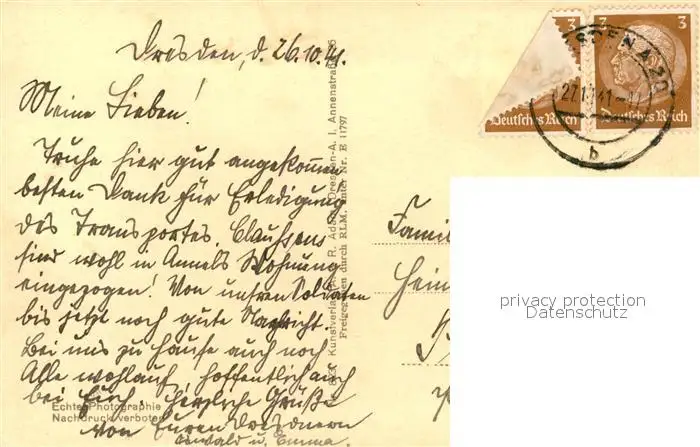 Dresden, d. 26.10.41.
Meine Lieben!
Truhe hier gut angekommen
besten Dank für Erledigung
des Transportes. Claussens
sind wohl in Annels Wohnung
eingezogen! Von unsren Soldaten
bis jetzt noch gute Nachricht.
Bei uns zu Hause auch noch
Alle wohlauf, hoffentlich auch
bei Euch. Herzliche Grüße
von Euren Dresdnern
u. Emma.
Echte Photographie
Nachdruck verboten
Kunstverlag R. Adam Dresden-A. 1, Annenstraße
Freigegeben durch RLM. unter Nr. E 11797
3
Deutsches Reich
3
3
Deutsches Reich
DRESDEN A 20
27.10.41
b
Famil
Hein
privacy protection
Datenschutz